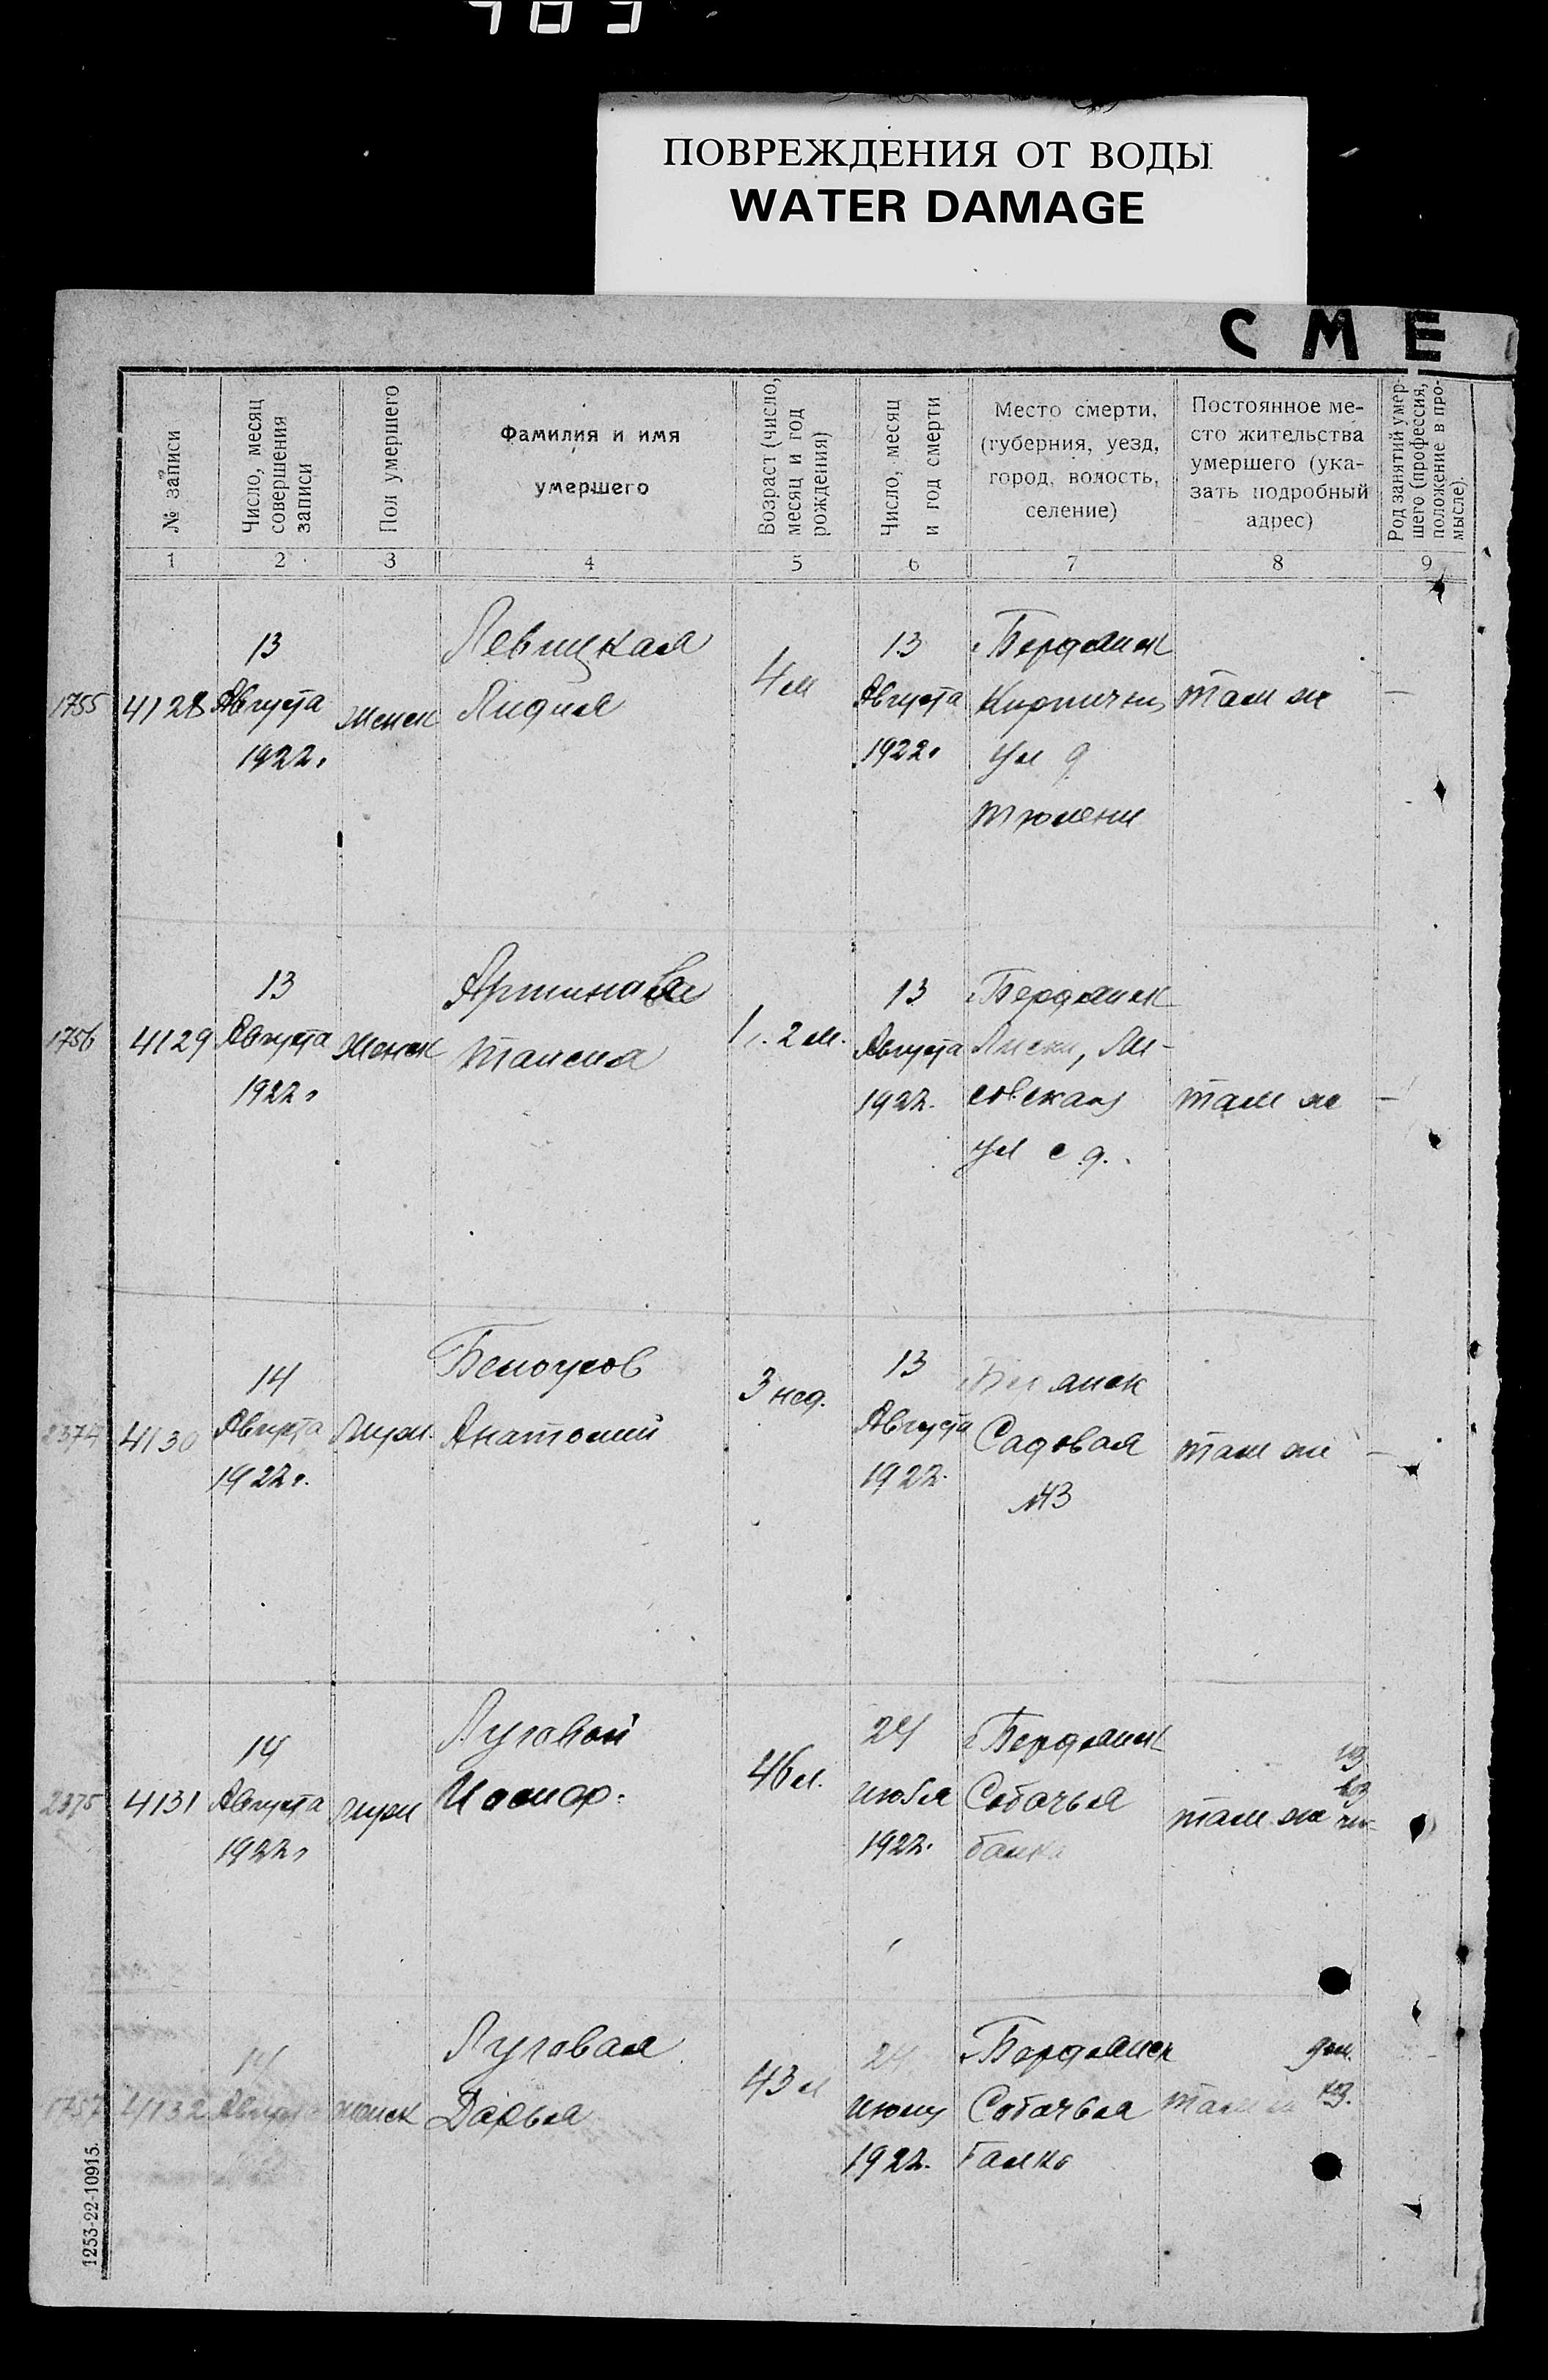 ПОВРЕЖДЕНИЯ ОТ ВОДЫ
WATER DAMAGE
СМЕ
№ записи
Число, месяц
совершения
записи
Пол умершего
Фамилия и имя
умершего
Возраст (число,
месяц и год
рождения)
Число, месяц
и год смерти
Место смерти,
(губерния, уезд,
город, волость,
селение)
Постоянное ме-
сто жительства
умершего (ука-
зать подробный
адрес)
Род занятий умер-
шего (профессия,
положение в про-
мысле).
1 2 3 4 5 6 7 8 9
1755
4128
13
Августа
1922.
женск
Левицкая
Лидия
4 м
13
Августа
1922.
Бердянск
ул д
там же
—
1756
4129
13
Августа
1922.
женск
Таисия
1 г. 2 м.
13
Августа
1922.
Бердянск
Лиски, Ли-
совская
ул с. д.
там же
—
2374
4130
14
Августа
1922.
муж.
Белоусов
Анатолий
3 нед.
13
Августа
1922.
Садовая
там же
—
2375
4131
14
Августа
1922.
муж
Луговой
46 л.
24
июля
1922.
г Бердянск
Собачья
балка
там же
из
воз
чи-
1757
4132
14
женск
Луговая
Дарья
43 л
24
1922.
Бердянск
Собачья
балка
там
дом.
хоз.
1253-22-10915.